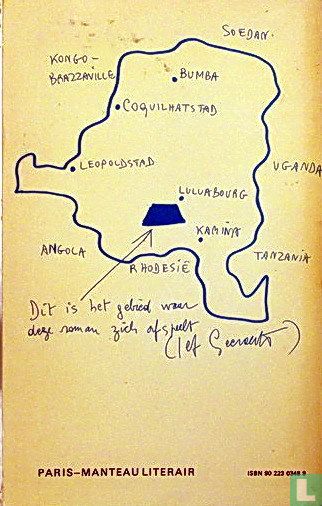 SOEDAN
KONGO-
BRAZZAVILLE
BUMBA
COQUILHATSTAD
LEOPOLDSTAD
UGANDA
LULUABOURG
KAMINA
ANGOLA
TANZANIA
RHODESIË
Dit is het gebied waar
deze roman zich afspeelt
(Jef Geeraerts)
PARIS–MANTEAU LITERAIR
ISBN 90 223 0348 9